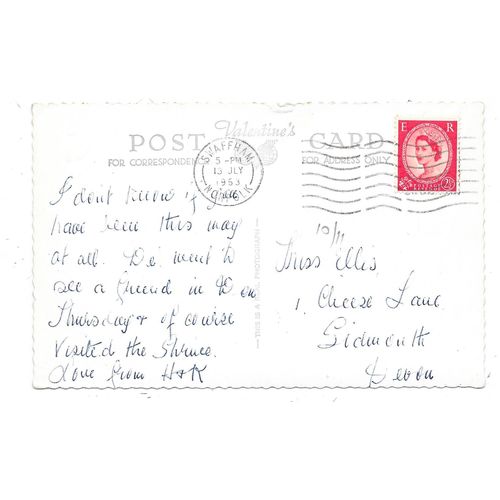 POST Valentine's CARD
FOR CORRESPONDENCE FOR ADDRESS ONLY
SWAFFHAM
5 - PM
13 JLY
1953
NORFOLK
E R
2½
THIS IS A REAL PHOTOGRAPH
I don't know if you
have been this way
at all. We went to
see a friend in W on
Thursday & of course
Visited the Shrine.
Love from H&K
10/11
Miss Ellis
1, Cheese Lane
Sidmouth
Devon